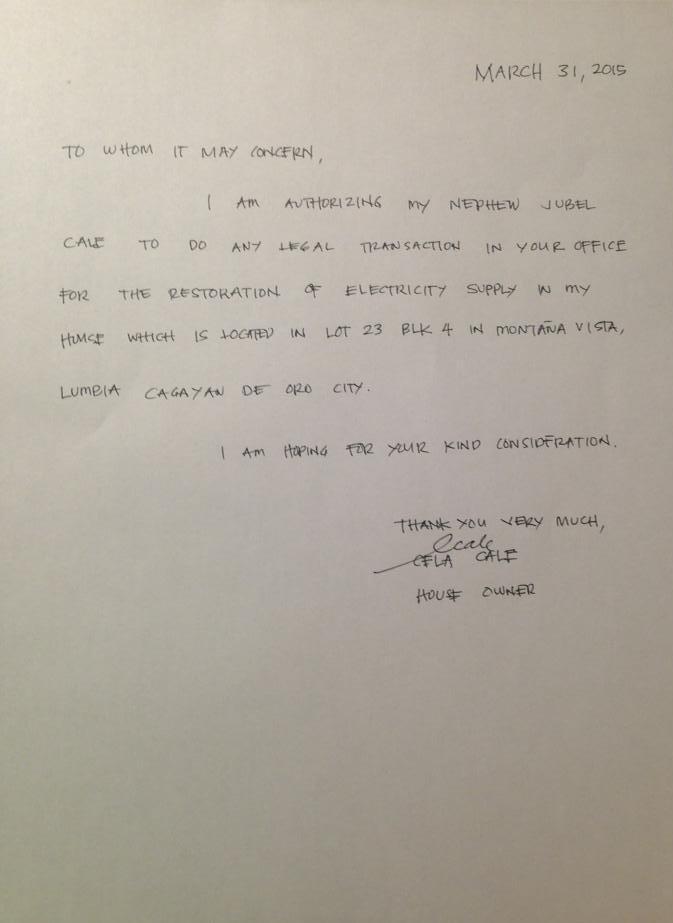 MARCH 31, 2015
TO WHOM IT MAY CONCERN,
I AM AUTHORIZING MY NEPHEW JUBEL
CALE TO DO ANY LEGAL TRANSACTION IN YOUR OFFICE
FOR THE RESTORATION OF ELECTRICITY SUPPLY IN MY
HOUSE WHICH IS LOCATED IN LOT 23 BLK 4 IN MONTAÑA VISTA,
LUMBIA CAGAYAN DE ORO CITY.
I AM HOPING FOR YOUR KIND CONSIDERATION.
THANK YOU VERY MUCH,
CALE
HOUSE OWNER